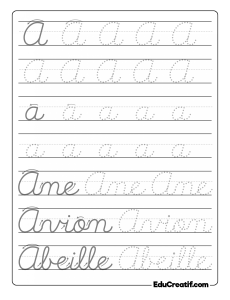 A A A A A
A A A A A
a a a a a
a a a a a
Ame Ame Ame
Avion Avion
Abeille Abeille
EduCreatif.com